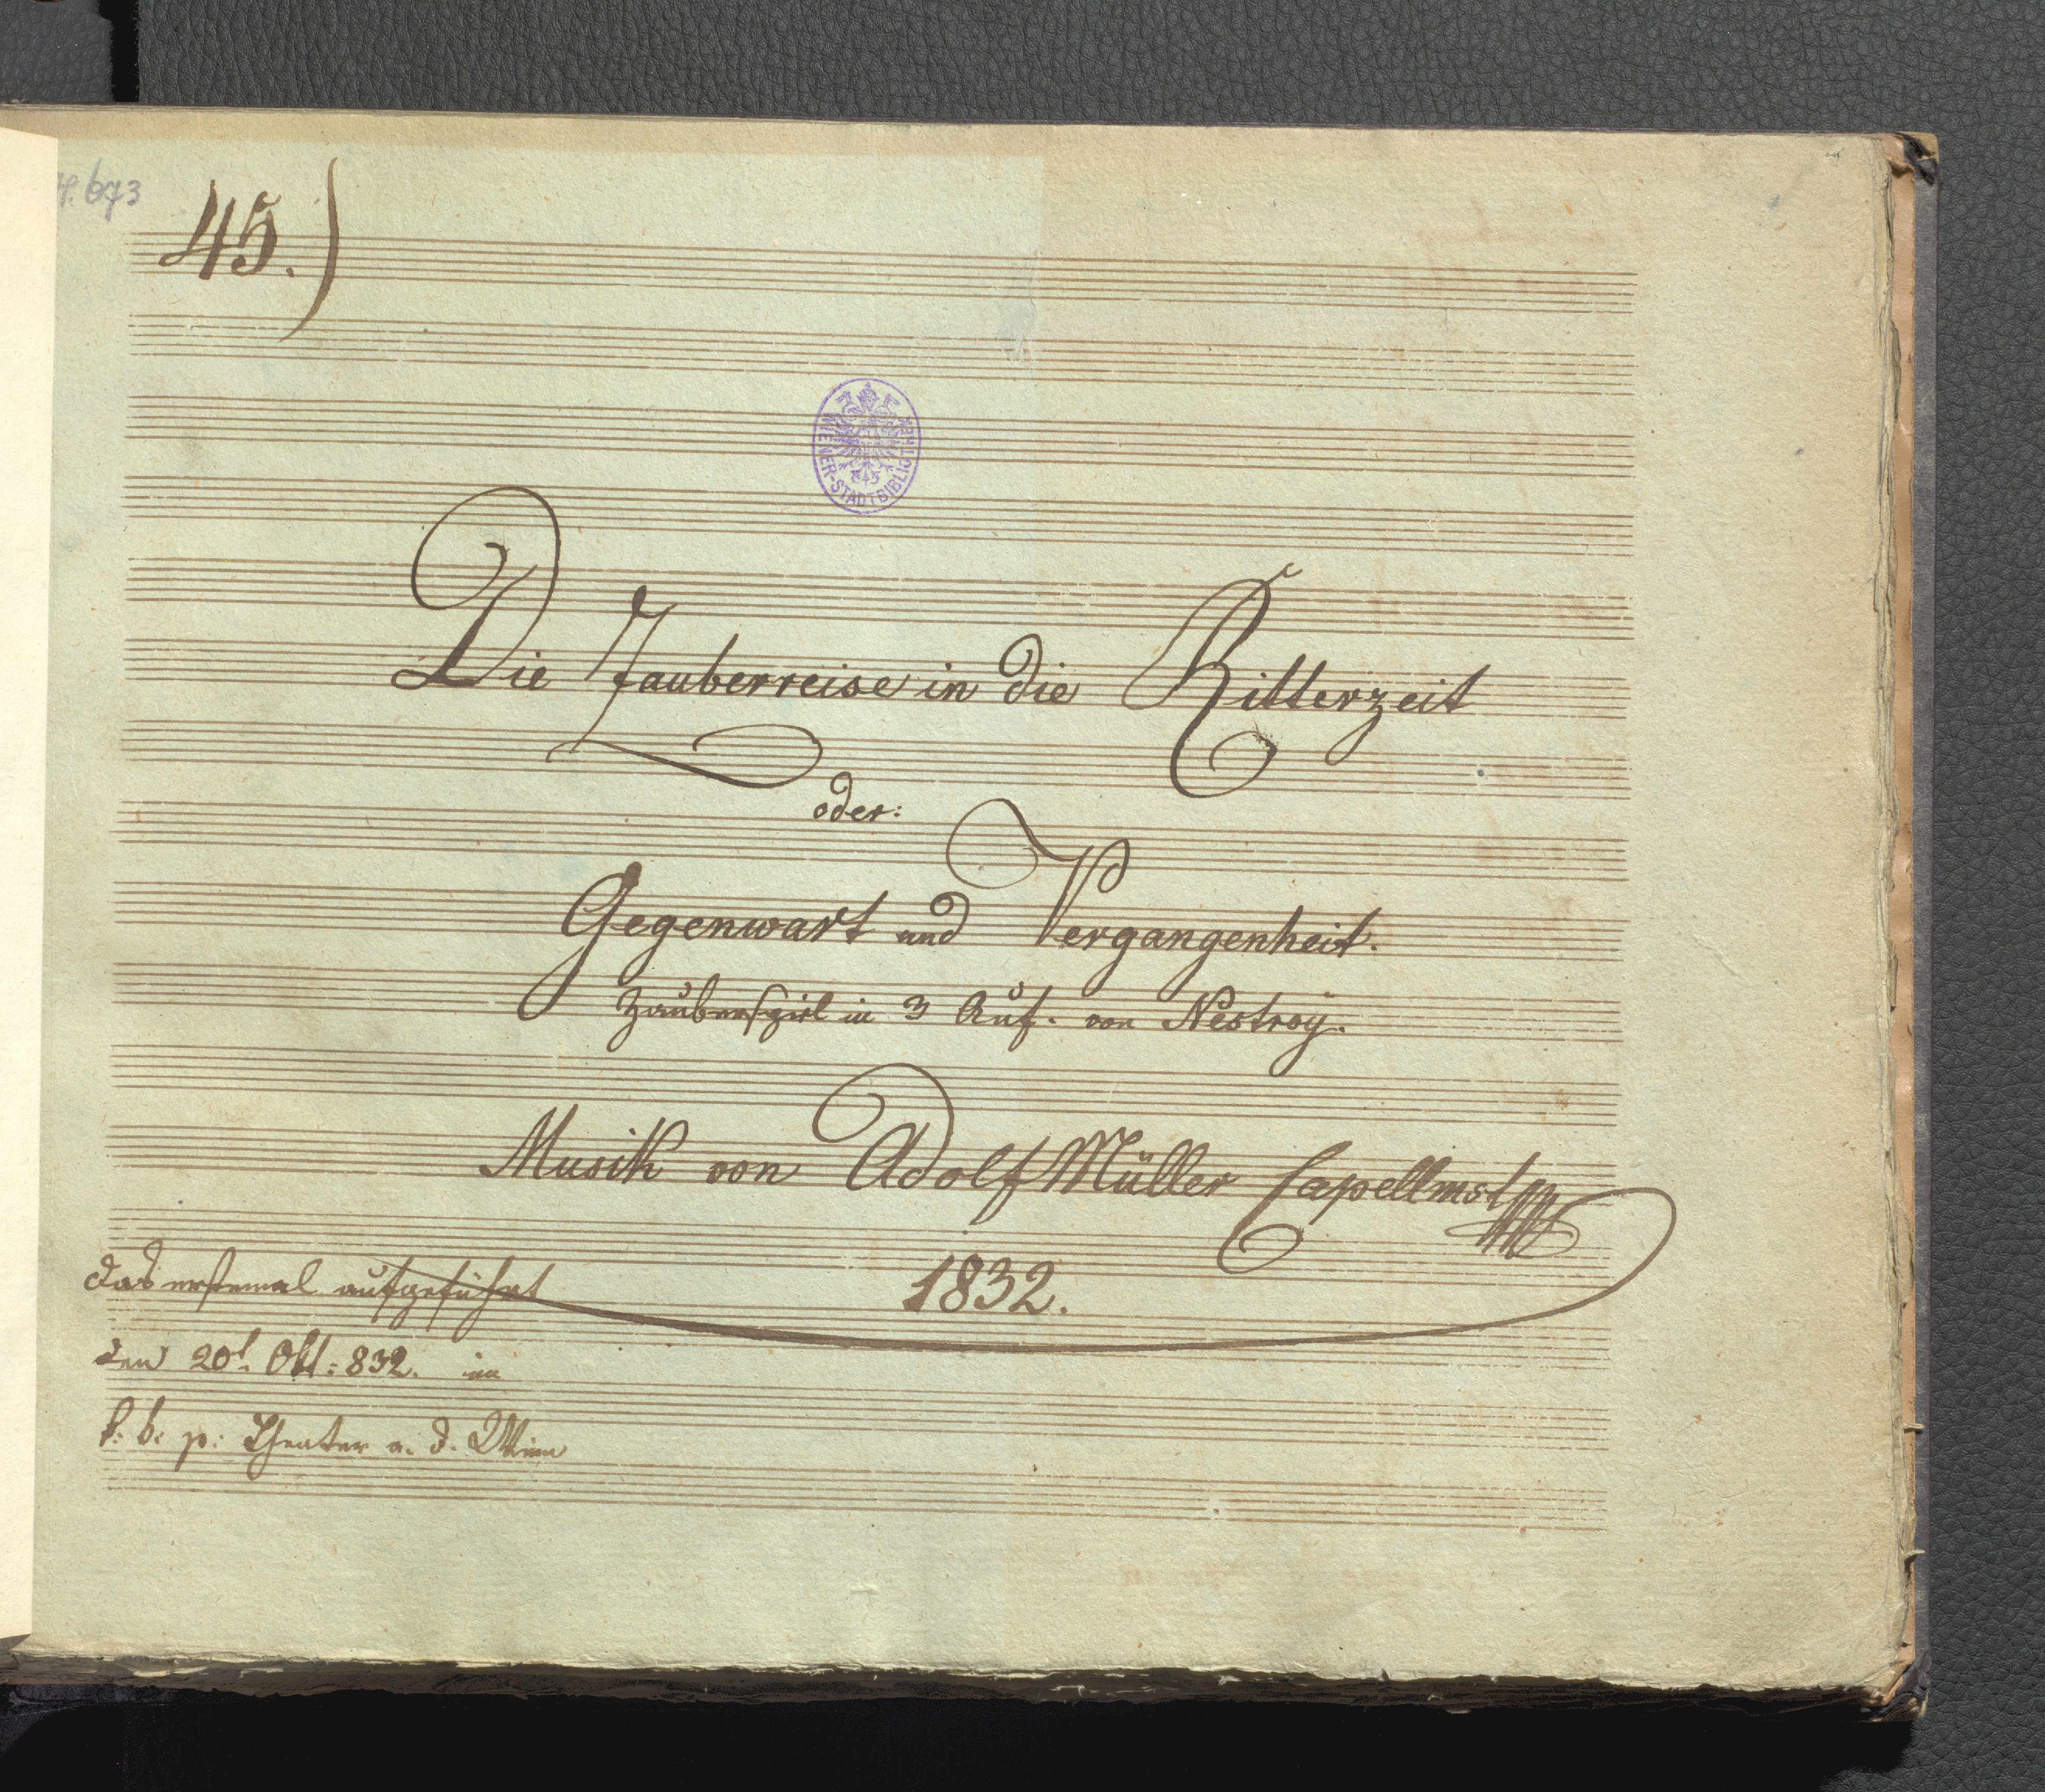 673
45.)
WIENER-STADTBIBLIOTHEK
Die Zauberreise in die Ritterzeit
oder:
Gegenwart und Vergangenheit.
Zauberspiel in 3 Auf. von Nestroy.
Musik von Adolf Müller Capellmst
1832.
das erstemal aufgeführt
den 20t. Okt: 832. im
k: k: p: Theater a. d. Wien